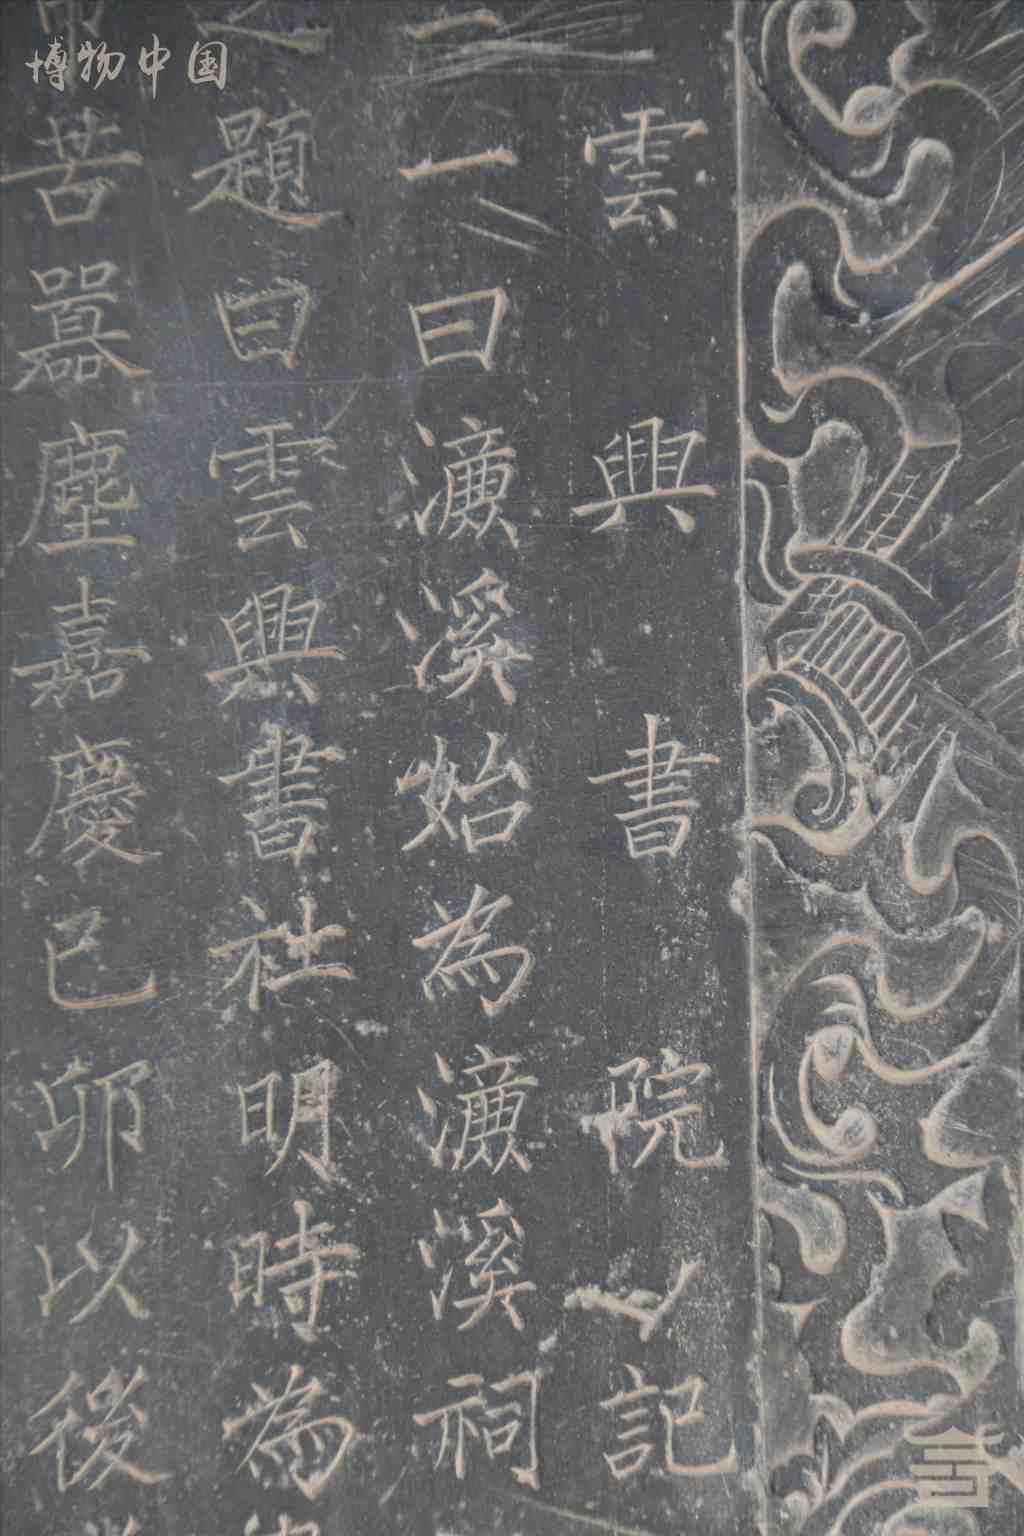 博物中国
雲興書院記
一一曰濂溪始為濂溪祠
題曰雲興書社明時為
苦囂塵嘉慶己卯以後